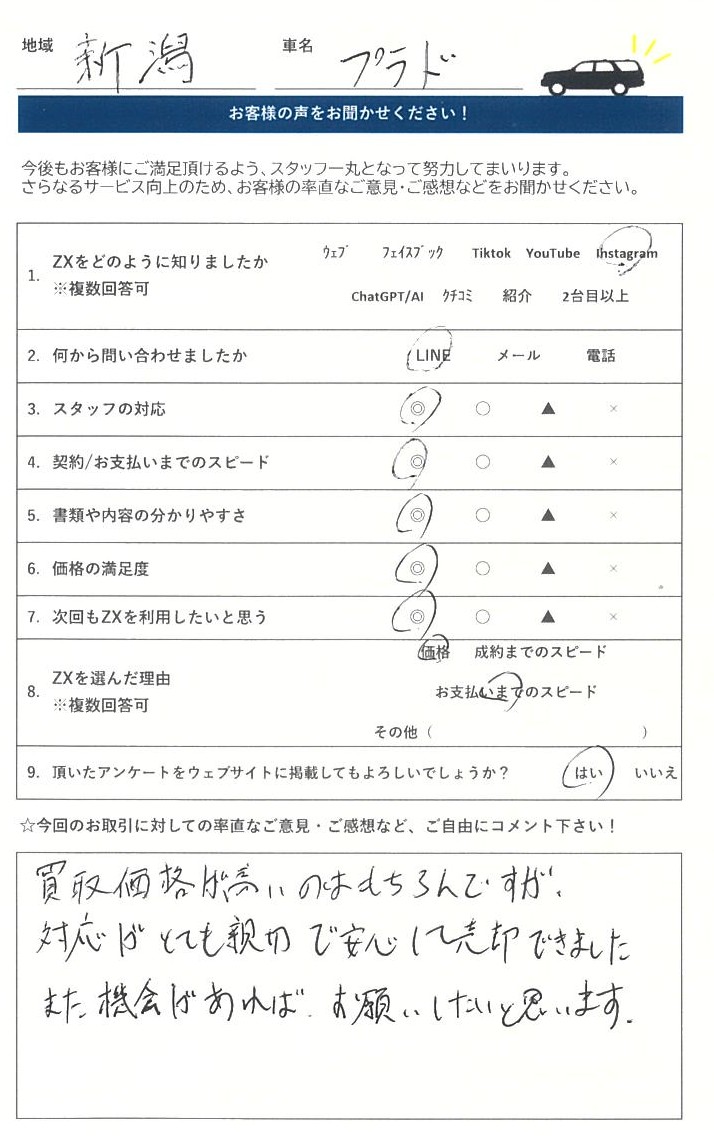 地域 新潟 車名 プラド
お客様の声をお聞かせください！
今後もお客様にご満足頂けるよう、スタッフ一丸となって努力してまいります。
さらなるサービス向上のため、お客様の率直なご意見・ご感想などをお聞かせください。
1. ZXをどのように知りましたか ※複数回答可
ｳｪﾌﾞ ﾌｪｲｽﾌﾞｯｸ Tiktok YouTube Instagram
ChatGPT/AI ｸﾁｺﾐ 紹介 2台目以上
2. 何から問い合わせましたか LINE メール 電話
3. スタッフの対応 ◎ ○ ▲ ×
4. 契約/お支払いまでのスピード ◎ ○ ▲ ×
5. 書類や内容の分かりやすさ ◎ ○ ▲ ×
6. 価格の満足度 ◎ ○ ▲ ×
7. 次回もZXを利用したいと思う ◎ ○ ▲ ×
8. ZXを選んだ理由 ※複数回答可
価格 成約までのスピード
お支払いまでのスピード
その他（ ）
9. 頂いたアンケートをウェブサイトに掲載してもよろしいでしょうか？ はい いいえ
☆今回のお取引に対しての率直なご意見・ご感想など、ご自由にコメント下さい！
買取価格が高いのはもちろんですが、
対応がとても親切で安心して売却できました
また機会があれば、お願いしたいと思います。